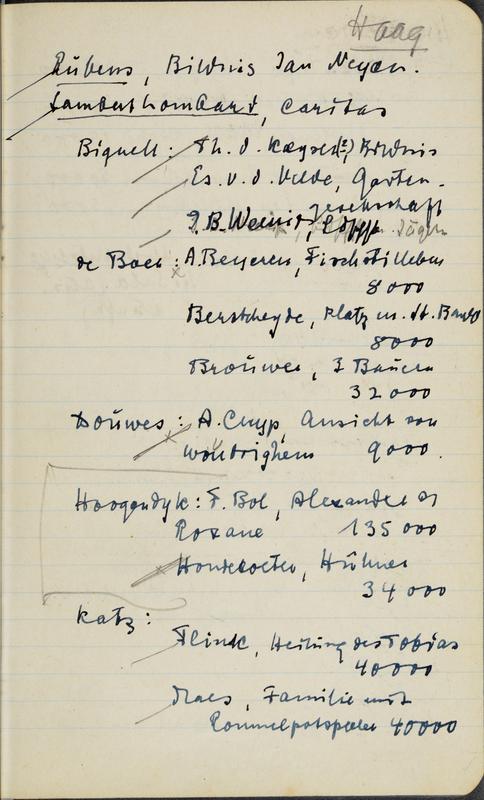 Haag
Rubens, Bildnis Jan Neyen.
Lambert Lombard, Caritas
Bignell: Th. d. Keyser(?) Bildnis
Es. v. d. Velde, Garten-
gesellschaft
J. B. Weenix,
de Boer: A. Beyeren, Fischstilleben
8000
Berckheyde, Platz m. St. Bavo
8000
Brouwer, 3 Bauern
32000
Douwes: A. Cuyp Ansicht von
Woudrighem 9000.
Hoogendyk: F. Bol, Alexander u
Roxane 135000
Hondecoeter, Hühner
34000
Katz:
Flink, Heilung des Tobias
40000
Maes, Familie mit
Rommelpotspieler 40000